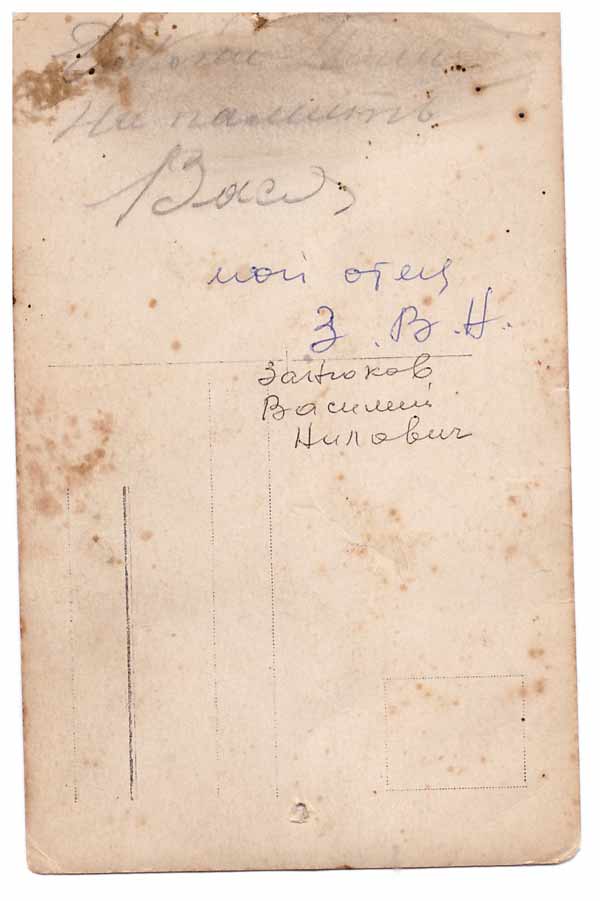 На память
Вася
мой отец
З.В.Н.
Занюков
Василий
Нилович